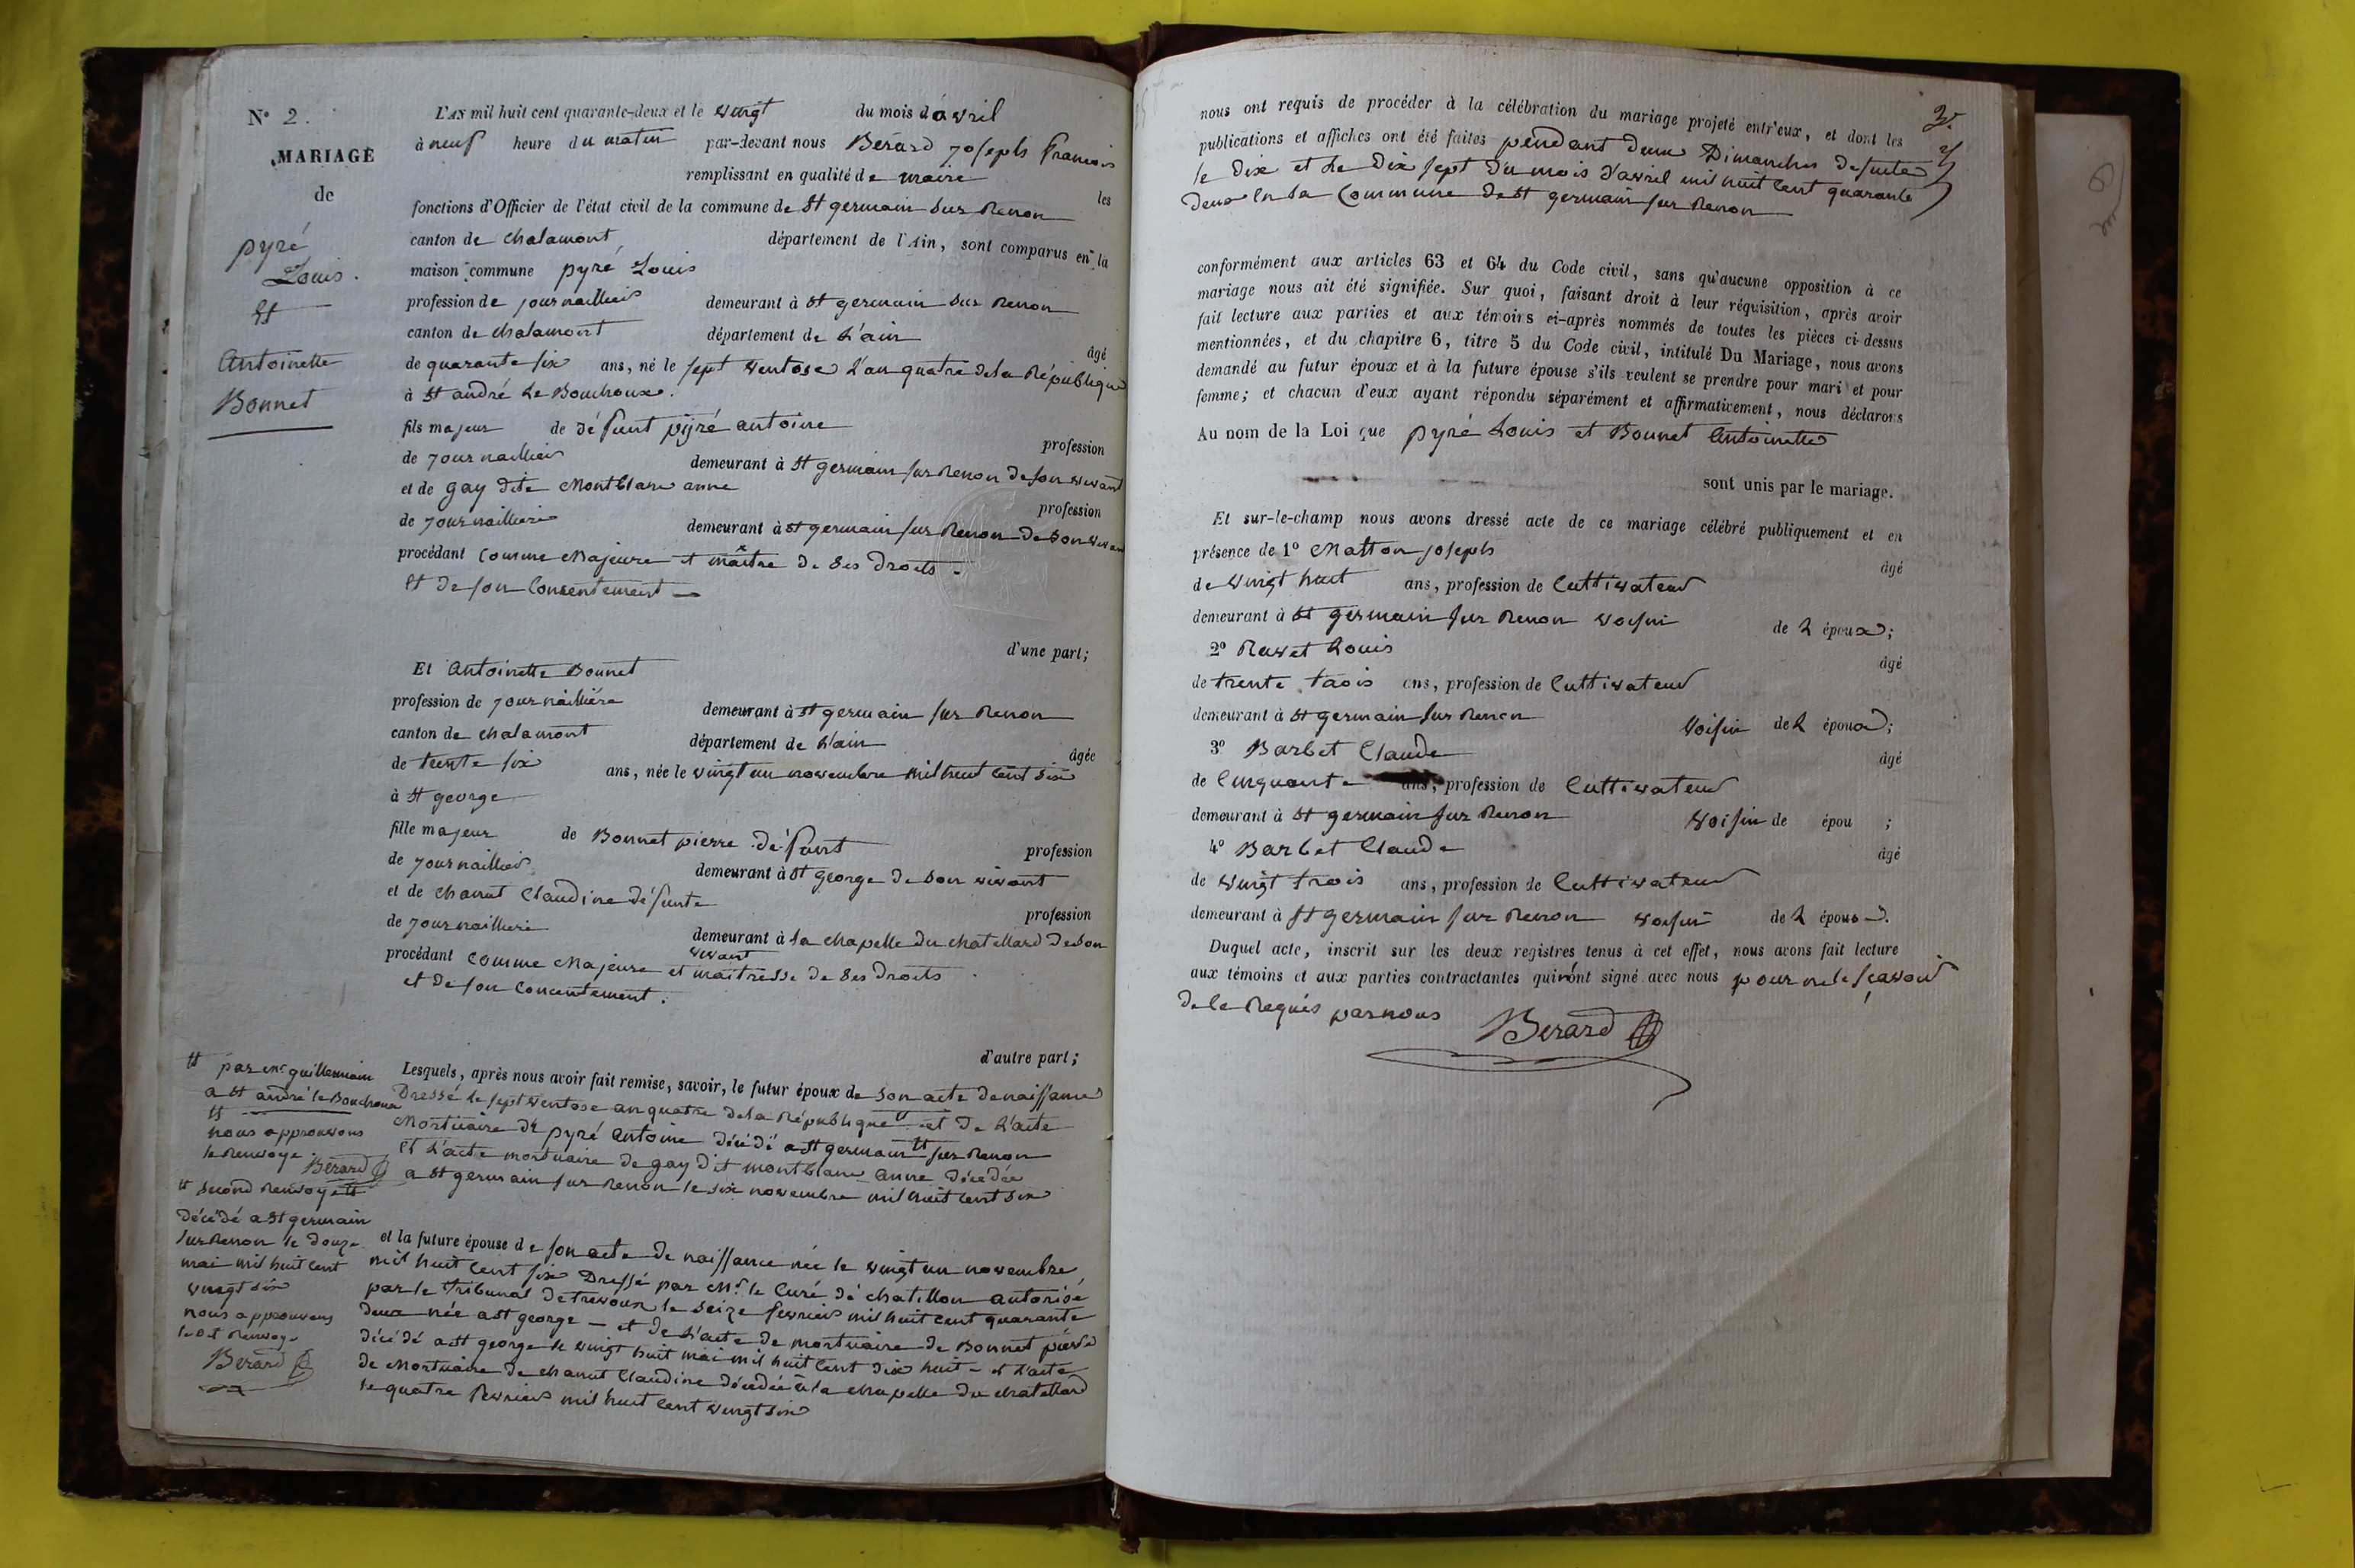 N° 2.
MARIAGE
de
pyré
Louis.
Et
Antoinette
Bonnet
L'AN mil huit cent quarante-deux et le wingt du mois d'avril
à neuf heure du matin par-devant nous Bérard joseph francois
remplissant en qualité de maire les
fonctions d'Officier de l'état civil de la commune de St germain sur Renon
canton de chalamont département de l'Ain, sont comparus en la
maison commune pyré Louis
profession de journaillier demeurant à St germain sur Renon
canton de chalamont département de L'ain âgé
de quarante six ans, né le sept wentose L'an quatre de la République
à St andré Le Bouchoux.
fils majeur de défunt pyré antoine profession
de journaillier demeurant à St germain sur Renon de son wiwant
et de gay dite Montblanc anne profession
de journaillieri demeurant à St germain sur Renon de son wiwan
procédant comme Majeure et maître de ses droits
Et de son Consentement
d'une part;
Et Antoinette Bonnet
profession de journaillière demeurant à St germain sur Renon
canton de chalamont département de L'ain âgée
de trente six ans, née le wingt un nowembre mil huit cent six
à St george
fille majeur de Bonnet pierre défunt profession
de journaillier demeurant à St george de son wiwant
et de chanut Claudine défunte profession
de journaillieri demeurant à La chapelle du chatellard de son
wiwant
procédant comme Majeure et maitresse de ses droits
et de son concentement.
d'autre part;
Lesquels, après nous avoir fait remise, savoir, le futur époux de son acte de naissance
Dressé le sept wentose an quatre de la République tt et de L'acte
Mortuaire de pyré Antoine décédé a St germain tt sur Renon
Et L'acte mortuaire de gay dit montblanc Anne décédée
a St germain sur Renon le six nowembre mil huit cent six
et la future épouse de son acte de naissance née le wingt un nowembre
mil huit cent six Dressé par Mr. le Curé de chatillon autorisé
par le Tribunal de trewoux le seize fewrier mil huit cent quarante
deux née a St george – et de L'acte de mortuaire de Bonnet pierre
décédé a St george le wingt huit mai mil huit cent dix huit – et L'acte
de Mortuaire de chanut Claudine décedée à la chapelle du chatellard
le quatre fewrier mil huit cent wingt six
tt par mr guillermain
a St andré le Bouchoux
tt
nous approuwons
le renwoye. Bérard
tt second Renwoye tt
décédé a St germain
sur Renon le douze
mai mil huit cent
wingt six
nous approuwons
le dit Renwoye
Berard
3.
nous ont requis de procéder à la célébration du mariage projeté entr'eux, et dont les
publications et affiches ont été faites pendant deux Dimanches de suite
le Dix et Le Dix sept du mois d'awril mil huit cent quarante
deux en La Commune de St germain sur Renon
conformément aux articles 63 et 64 du Code civil, sans qu'aucune opposition à ce
mariage nous ait été signifiée. Sur quoi, faisant droit à leur réquisition, après avoir
fait lecture aux parties et aux témoins ci-après nommés de toutes les pièces ci-dessus
mentionnées, et du chapitre 6, titre 5 du Code civil, intitulé Du Mariage, nous avons
demandé au futur époux et à la future épouse s'ils veulent se prendre pour mari et pour
femme; et chacun d'eux ayant répondu séparément et affirmativement, nous déclarons
Au nom de la Loi que pyré Louis et Bonnet Antoinette
sont unis par le mariage.
Et sur-le-champ nous avons dressé acte de ce mariage célébré publiquement et en
présence de 1° Matton joseph âgé
de wingt huit ans, profession de Cultiwateur
demeurant à St germain sur Renon woisin de L époux;
2° Rawet Louis âgé
de trente trois ans, profession de Cultiwateur
demeurant à St germain sur Renon Woisin de L époux;
3° Barbet Claude âgé
de Cinquante ans, profession de Cultiwateur
demeurant à St germain sur Renon Woisin de épou ;
4° Barbet Claude âgé
de wingt trois ans, profession de Cultiwateur
demeurant à St germain sur Renon woisin de L épous.
Duquel acte, inscrit sur les deux registres tenus à cet effet, nous avons fait lecture
aux témoins et aux parties contractantes qui n'ont signé avec nous pour ne le sçawoir
de le Requis par nous
Berard